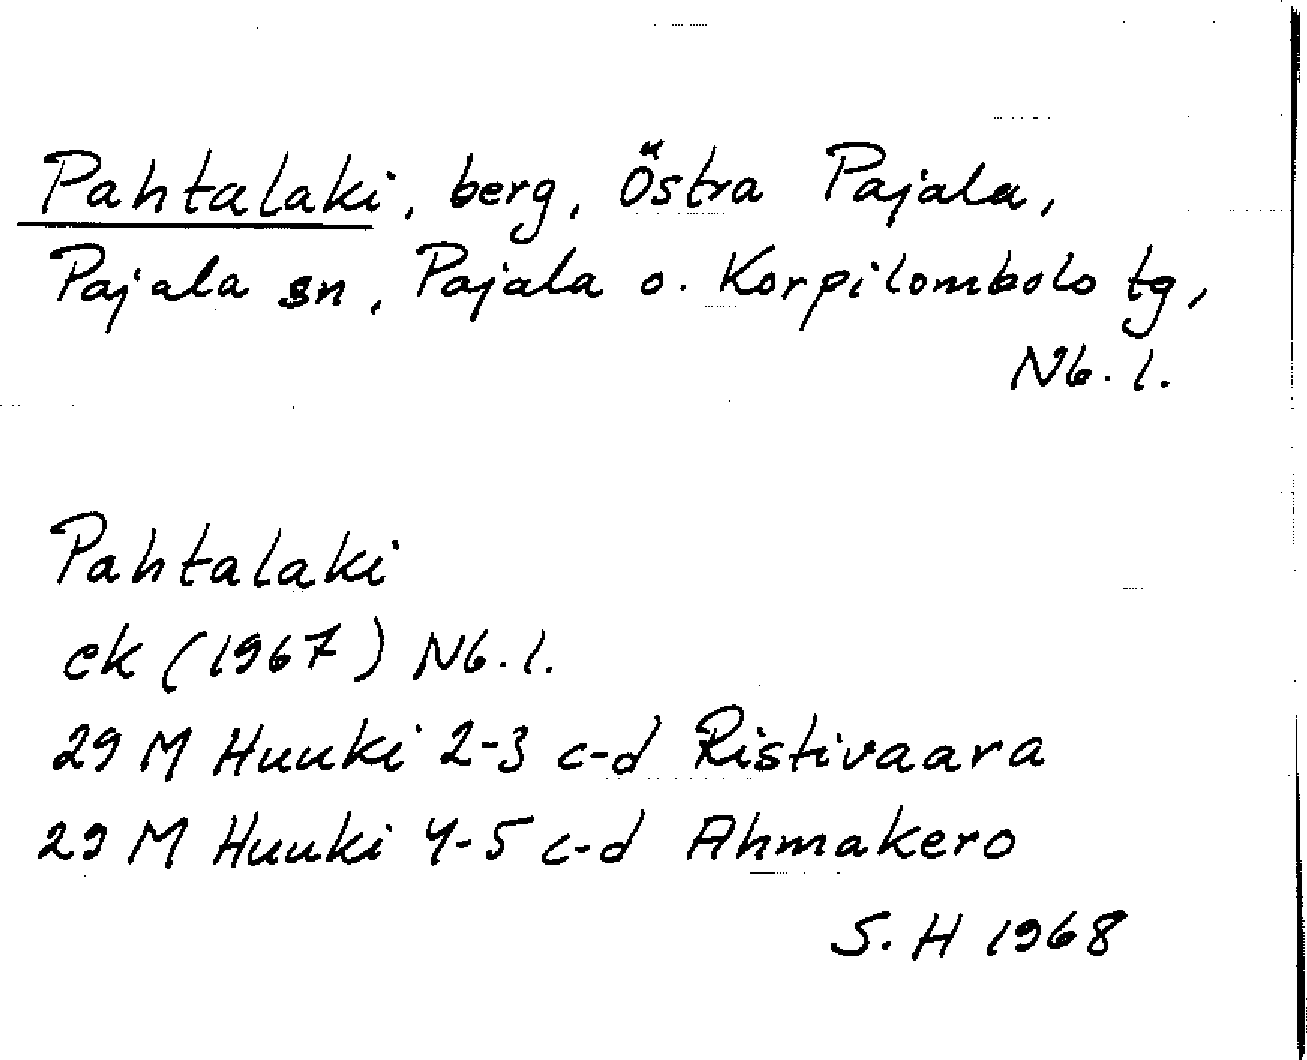 Pahtalaki, berg, Östra Pajala,
Pajala sn, Pajala o. Korpilombolo tg,
Nb. l.
Pahtalaki
ek (1967) Nb. l.
29 M Huuki 2-3 c-d Ristivaara
29 M Huuki 4-5 c-d Ahmakero
S. H 1968